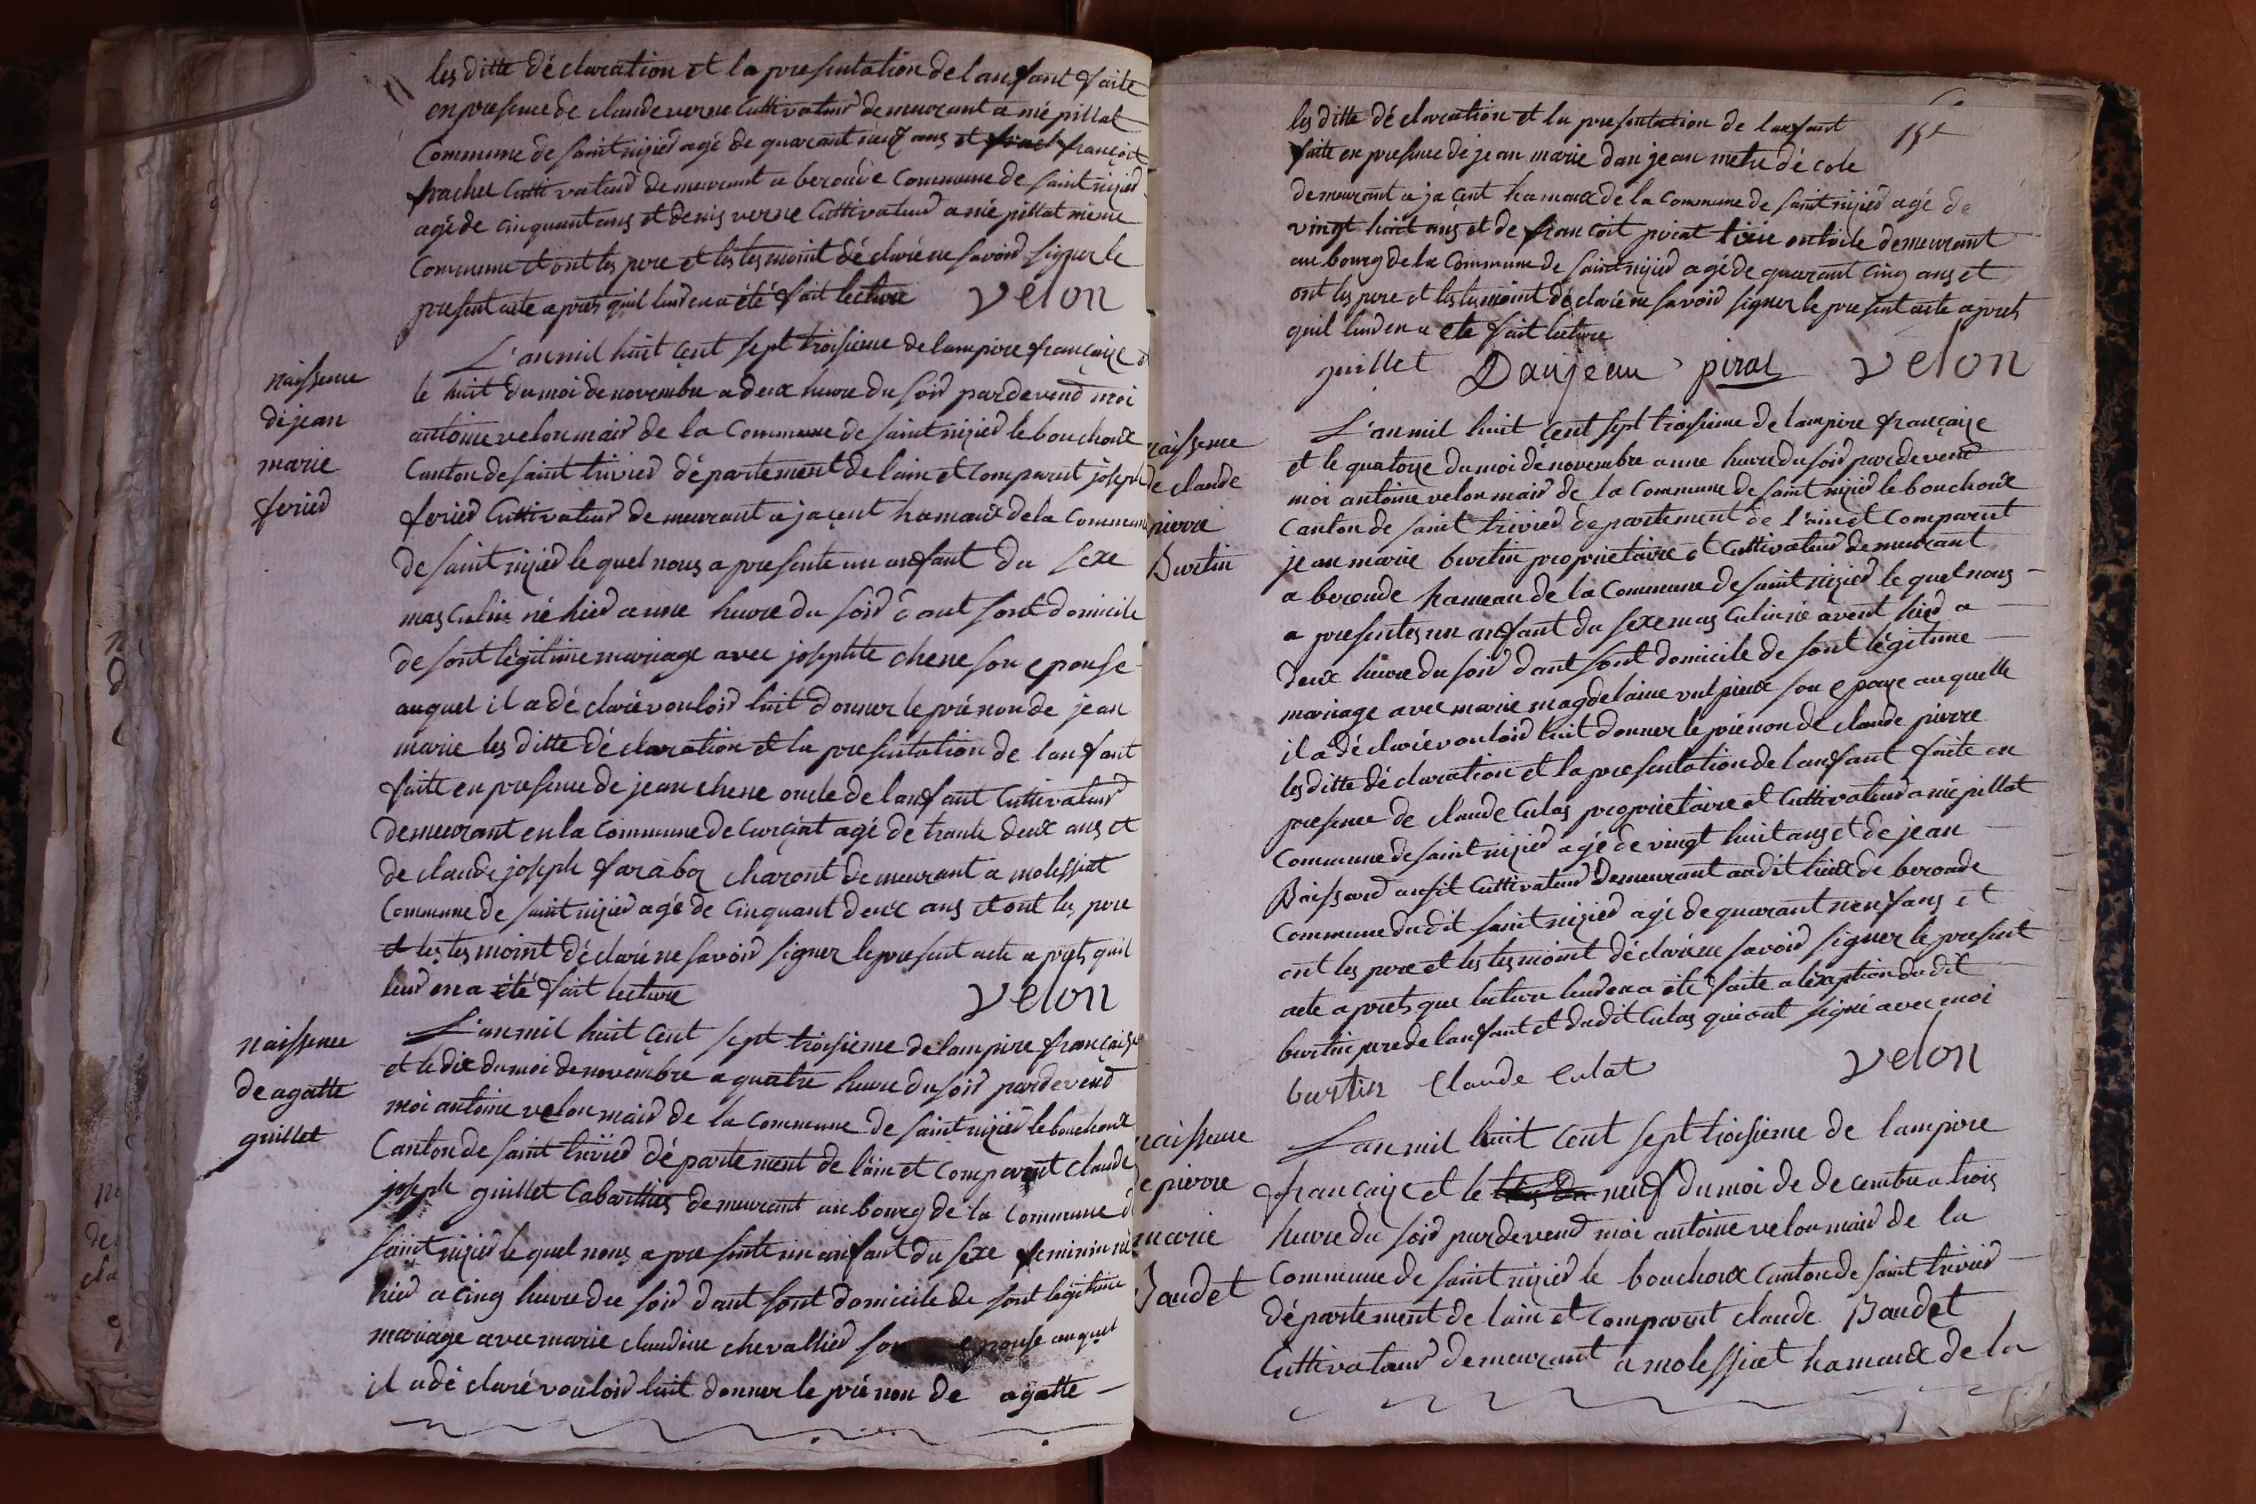 les ditte déclaration et la presentation de lanfant faite
en presence de claude verne Cultivateur demeurant a mépillat
Commune de saint nizier agé de quarant neuf ans et françoit
frachet Cultivateur demeurant a beroude Commune de saint nizier
agé de cinquant ans et denis verne Cultivateur a mépillat meme
Commune et ont les pere et les tesmoint déclaré ne savoir signer le
present acte aprets quil leur en a été fait lecture velon
naissence
de jean
marie
ferier
L'an mil huit cent sept troisieme de lampire françaize et
le huit du moi de novembre a deux heure du soir pardevend moi
antoine velon mair de la Commune de saint nizier le bouchoux
Canton de saint trivier département de lain et comparut joseph
ferier Cultivateur demeurant a jacent hamaux de la Commune
de saint nizier le quel nous a presente un anfant du sexe
masculin né hier a une heure du soir dant sont domicile
de sont légitime mariage avec josephte chene son epouse
auquel il a déclaré vouloir luit donner le prénon de jean
marie les ditte déclaration et la presentation de lanfant
faitte en presence de jean chene oncle de lanfant Cultivateur
demeurant en la Commune de Curciat agé de trante deux ans et
de claude joseph faraboz charont demeurant a molessiat
Commune de saint nizier agé de Cinquant deux ans et ont les pere
et les tesmoint déclaré ne savoir signer le present acte a prets quil
leur en a été fait lecture velon
naissence
de agatte
guillet
L'an mil huit cent sept troisieme de lampire françaize
et le dix du moi de novembre a quatre heure du soir pardevend
moi antoine velon mair de la Commune de saint nizier le bouchoux
Canton de saint trivier département de l'ain et comparut claude
joseph guillet Cabarttier demeurant au bourg de la commune d
saint nizier le quel nous a presente un anfant du sexe feminin né
hier a cinq heure du soir dant sont domicile de sont légitime
mariage avec marie claudine chevallier son epouse auquel
il a déclaré vouloir luit donner le prénon de agatte
15e
les ditte déclaration et la presentation de lanfant
faite en presence de jean marie danjean metre décole
demeurant a jacent hamaux de la Commune de saint nizier agé de
vingt huit ans et de françoit pirat tixie en toile demeurant
au bourg de la Commune de saint nizier agé de quarant cinq ans et
ont les pere et les tesmoint déclaré ne savoir signer le present acte aprets
quil leur en a été fait lecture
guillet Danjean pirat velon
naissence
de claude
pierre
Burtin
L'an mil huit cent sept troisieme de lampire françaize
et le quatorze du moi de novembre a une heure du soir pardevend
moi antoine velon mair de la Commune de saint nizier le bouchoux
Canton de saint trivier département de l'ain et comparut
jean marie burtin proprietaire et Cultivateur demeurant
a beroude hameau de la Commune de saint nizier le quel nous
a presentes un anfant du sexe masculin né avent hier a
deux heure du soir dant sont domicile de sont légitime
mariage avec marie magdelaine vulpieux son epouze auquelle
il a déclaré vouloir luit donner le prénon de claude pierre
les ditte déclaration et la presentation de lanfant faite en
presence de claude Culas proprietaire et Cultivateur a mépillat
Commune de saint nizier agé de vingt huit ans et de jean
Boissard ausit Cultivateur demeurant audit lieux de beroude
Commune du dit saint nizier agé de quarant neuf ans et
ont les pere et les tesmoint déclaré ne savoir signer le present
acte aprets que lecture leur en a été faite a lexaption dudit
burtin pere de lanfant et dudit Culas qui ont signé avec moi
burtin Claude Culat velon
naissence
de pierre
marie
Baudet
L'an mil huit cent sept troisieme de lampire
françaize et le neuf du moi de decembre a trois
heure du soir pardevend moi antoine velon mair de la
Commune de saint nizier le bouchoux Canton de saint trivier
département de lain et comparut claude Baudet
Cultivateur demeurant a molessiat hamaux de la